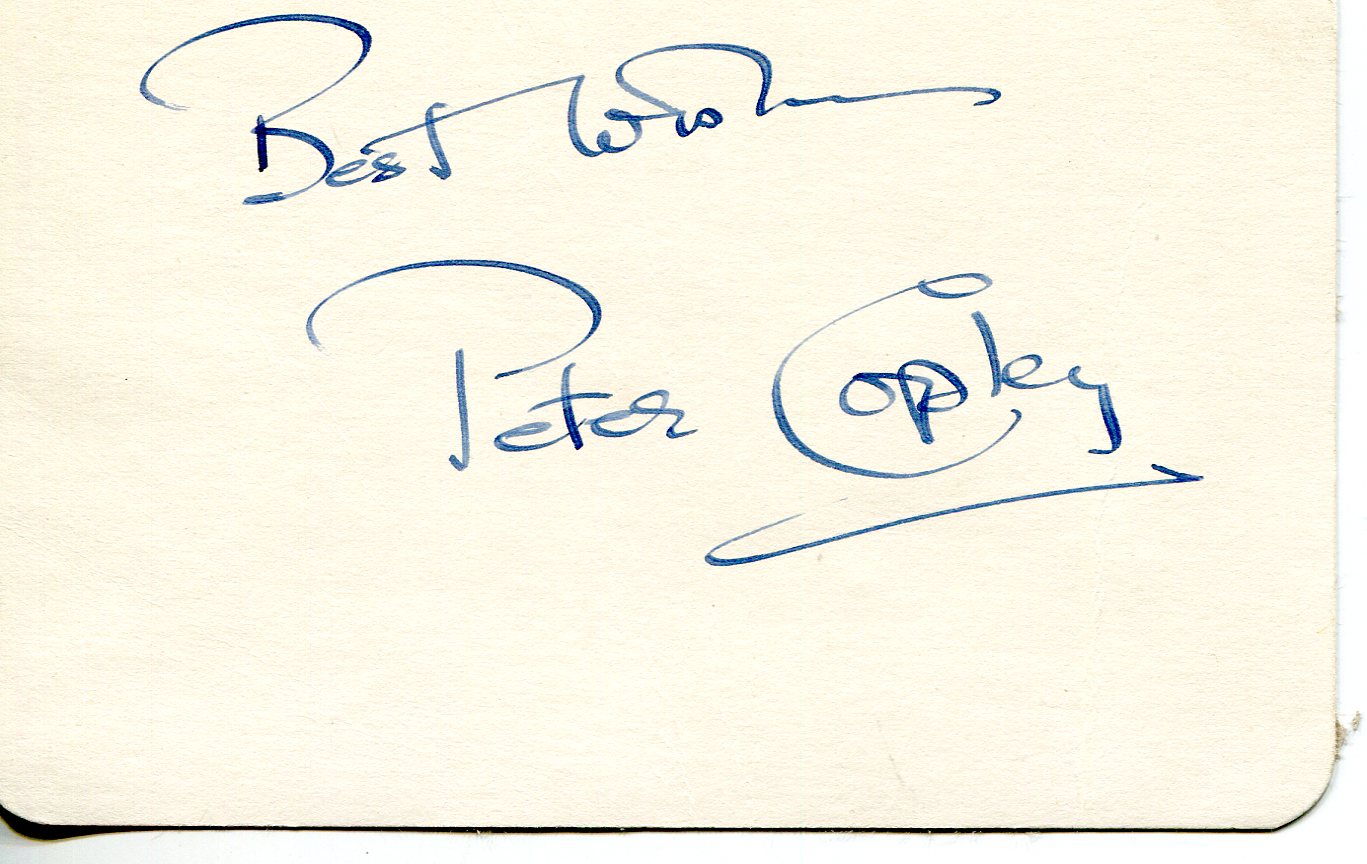 Best Wishes
Peter Copley